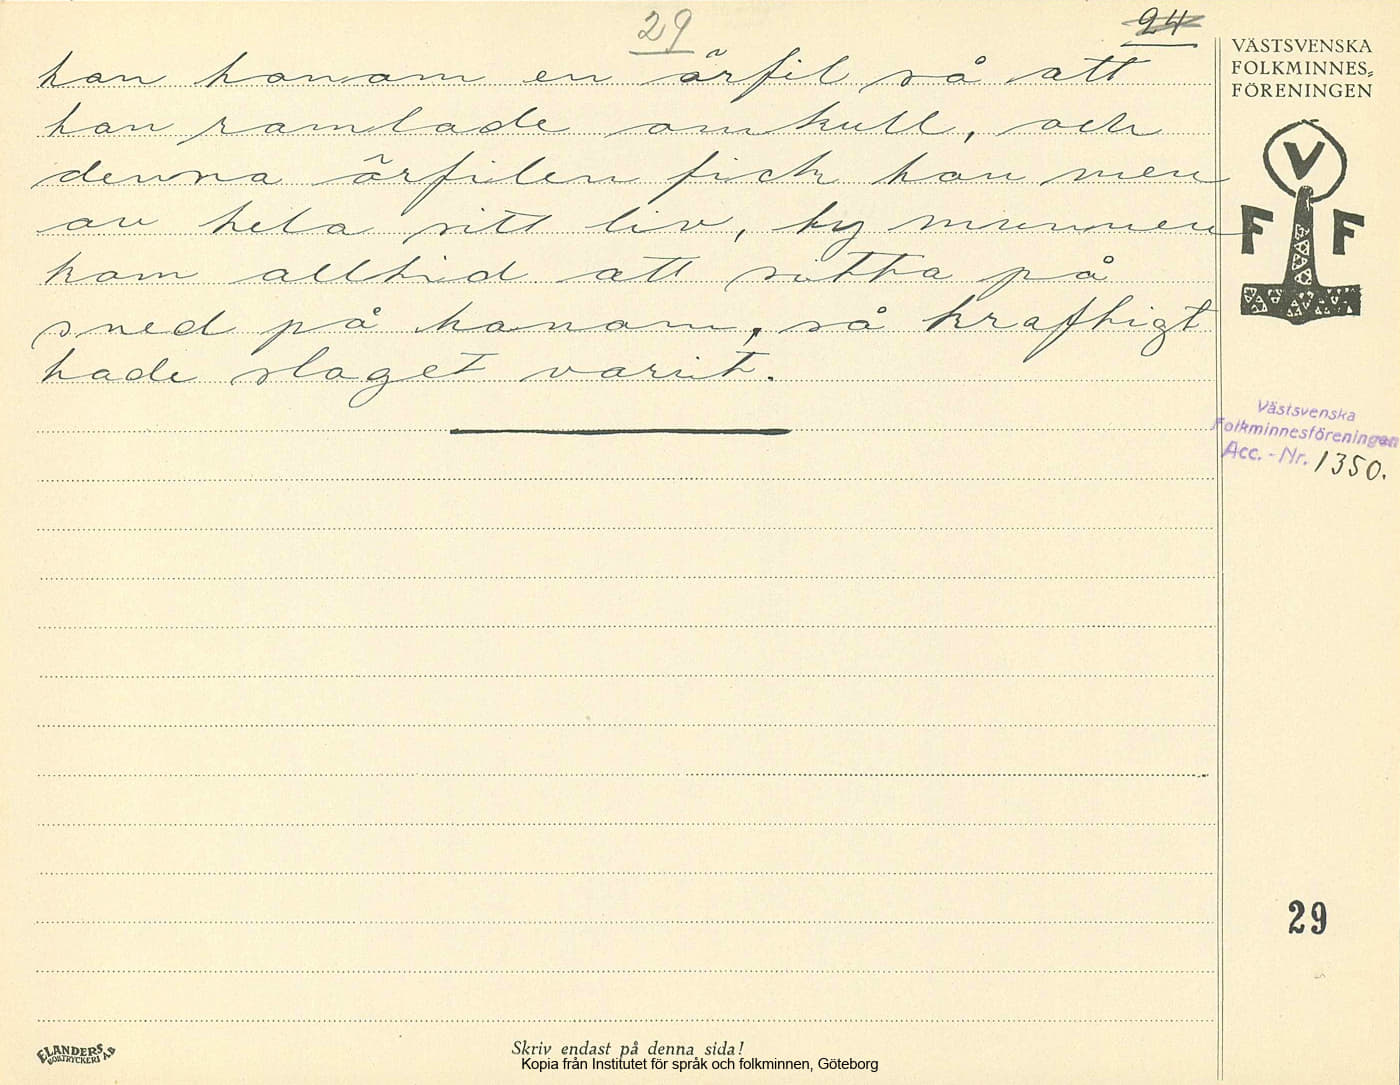 29
24
han honom en örfil så att
han ramlade omkull, och
denna örfilen fick han men
av hela sitt liv, ty munnen
kom alltid att sitta på
sned på honom, så kraftigt
hade slaget varit.
VÄSTSVENSKA
FOLKMINNES-
FÖRENINGEN
V
F F
Västsvenska
Folkminnesföreningen
Acc.-Nr. 1350.
29
ELANDERS
BOKTRYCKERI A.B
Skriv endast på denna sida!
Kopia från Institutet för språk och folkminnen, Göteborg